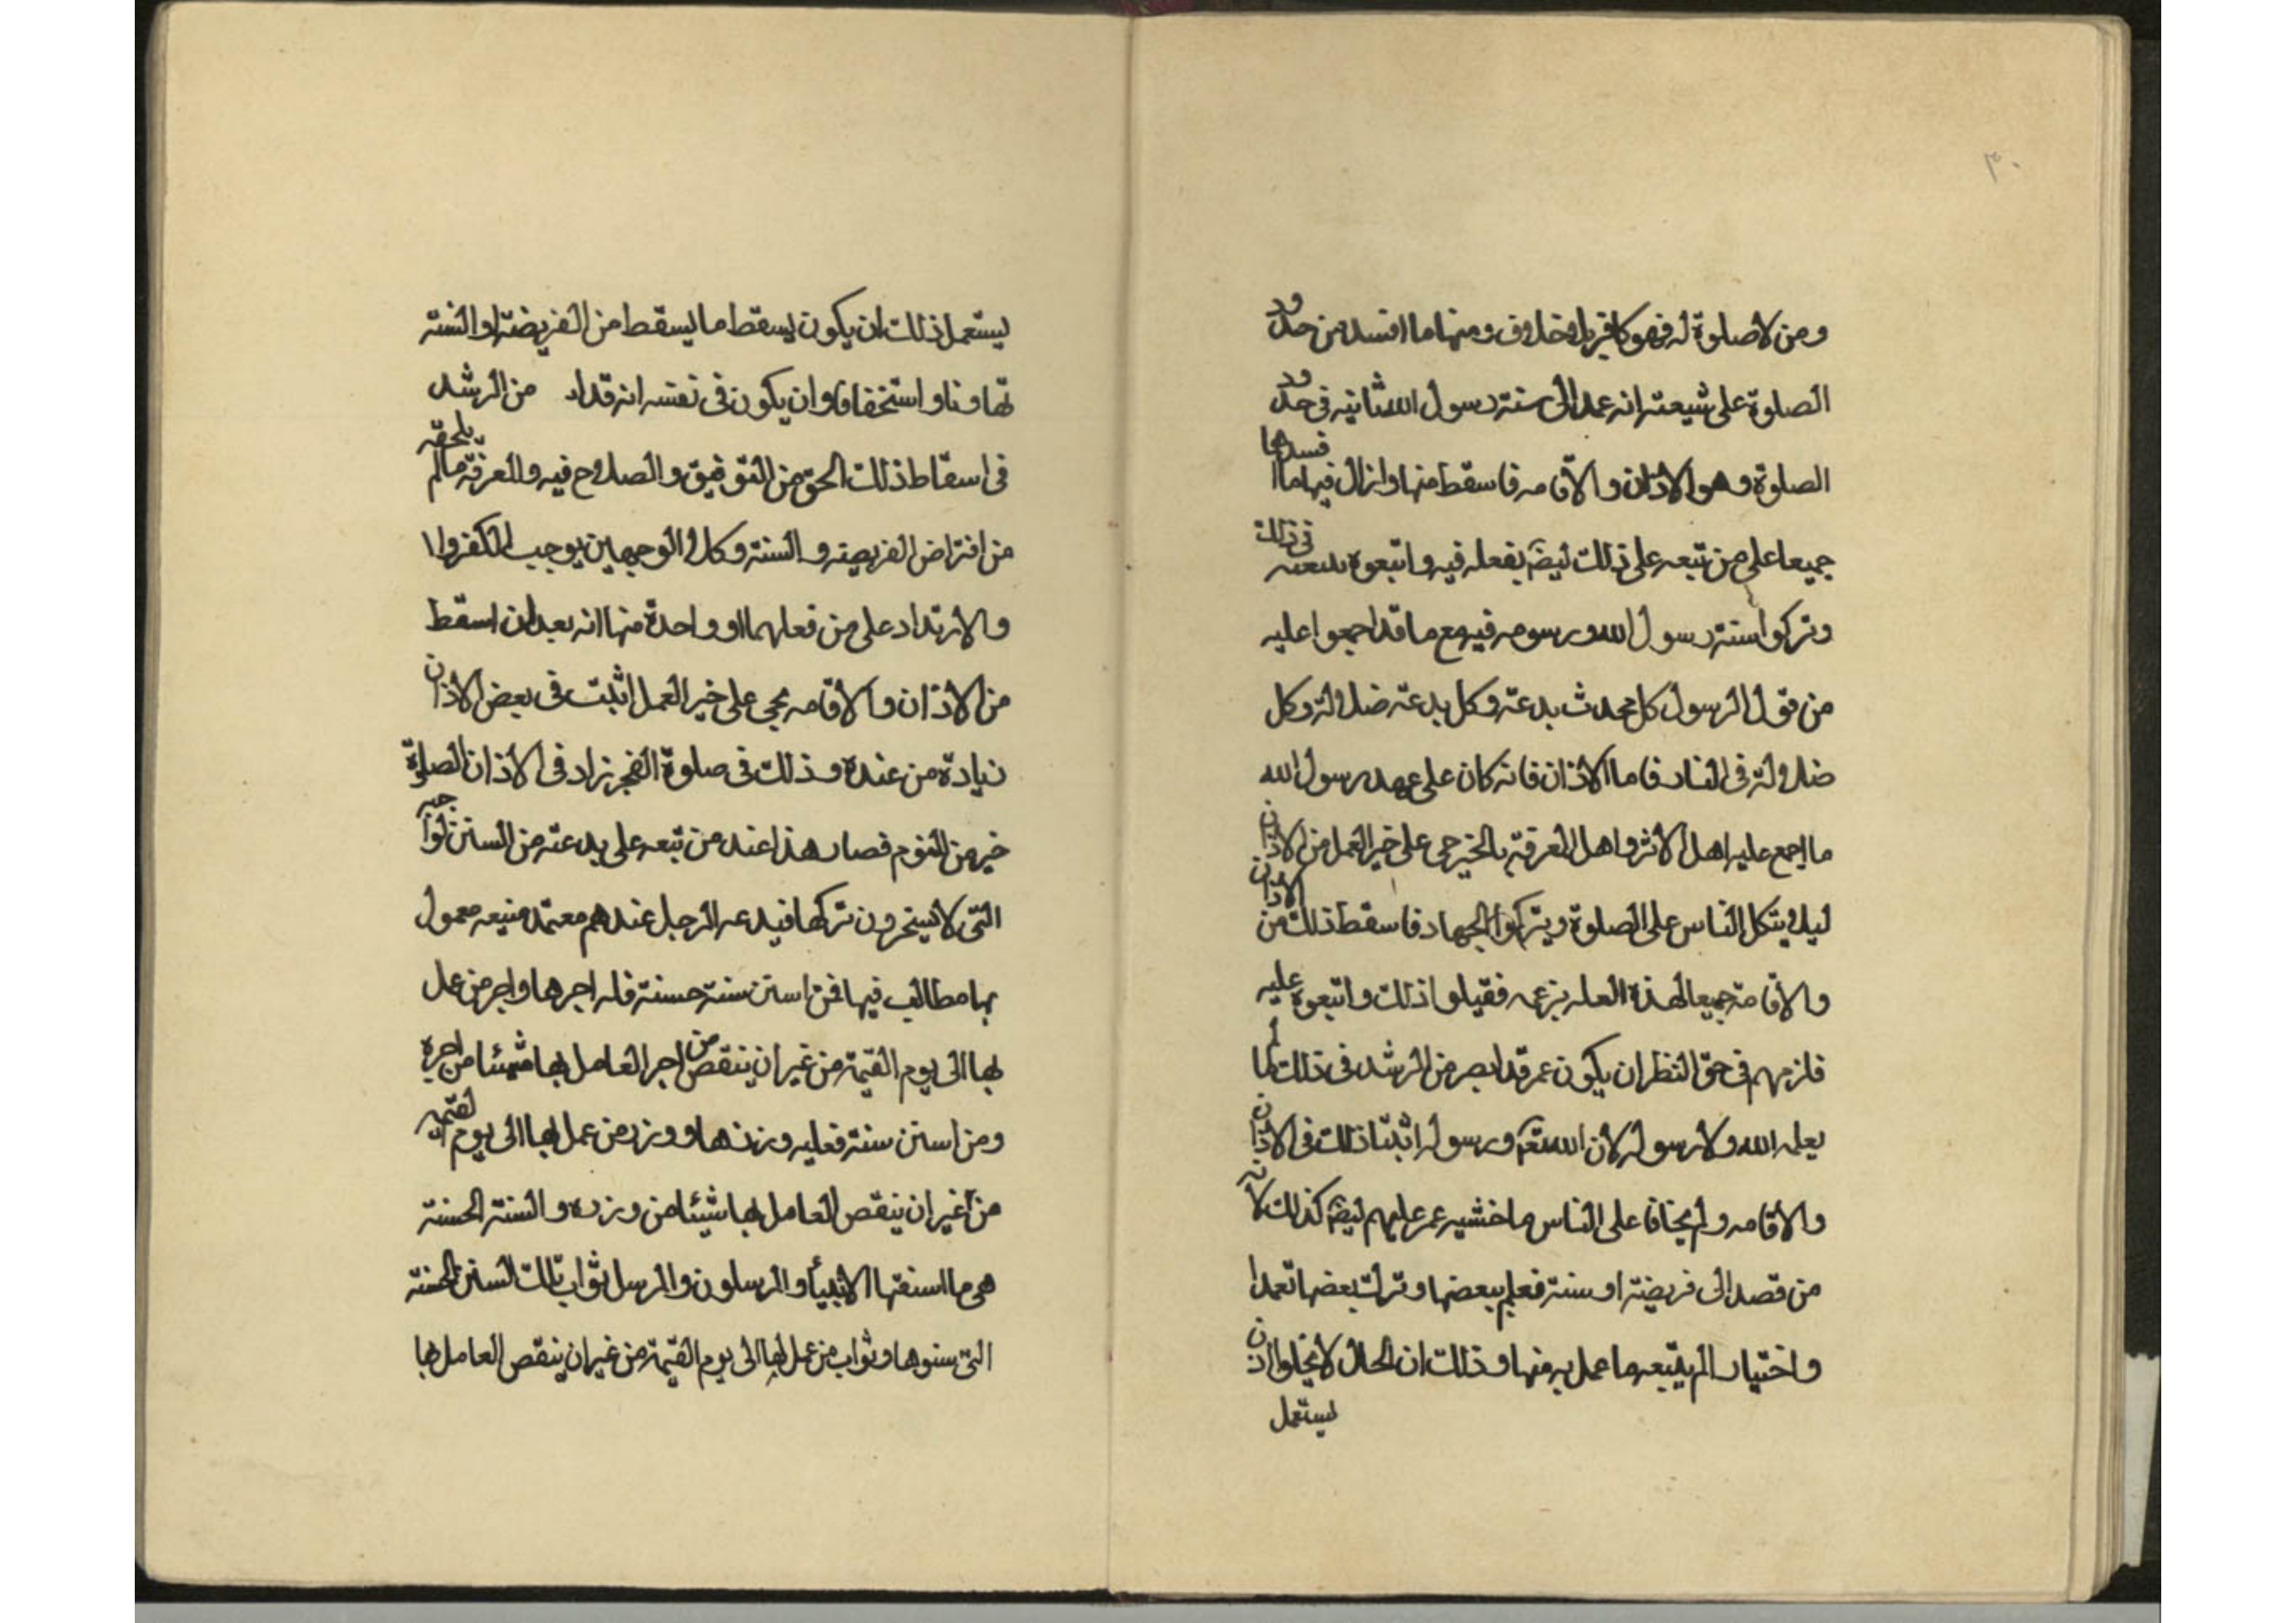 ومن لا صلوة له فهو كافر بلا خلاف ومنها ما افسد من حدود
الصلوة على شيعته انه عمد الى سنة رسول الله ثانيه فى حدود
الصلوة وهو الاذان والاقامه فاسقط منها وازال فيها ما افسدها
جميعا على من تبعه على ذلك ليضم بفعله فيه واتبعوه فى ذلك
وتركوا سنة رسول الله ورسومه فيه مع ما قد اجمعوا عليه
من قول الرسول كل محدث بدعة وكل بدعة ضلالة وكل
ضلالة فى النار فاما الاذان فانه كان على عهد رسول الله
ما اجمع عليه اهل الاثر واهل المعرفة بالخبر حى على خير العمل من الاذان
ليلا يتكل الناس على الصلوة ويتركوا الجهاد فاسقط ذلك من الاذان
والاقامة جميعا لهذه العله بزعمه فقبلوا ذلك واتبعوه عليه
فلزمهم فى حق النظر ان يكون عمر قد ابصر من الرشد فى ذلك ما لم
يعلمه الله ولا رسوله لان الله ورسوله اثبتا ذلك فى الاذان
والاقامه ولم يخافا على الناس ما خشيه عمر عليهم كذلك لانه
من قصد الى فريضة او سنة فعلم ببعضها وترك بعضها تعمدا
واختيارا لم يتبعه ما عمل به منها وذلك ان الحال لا يخلوا اذن
ليستعمل
ليستعمل ذلك ان يكون يسقط ما يسقط من الفريضة او السنة
تهاونا واستخفافا وان يكون فى نفسه انه قد اد من الرشد
فى اسقاط ذلك الحق من التوفيق والصلاح فيه والمعرفة ما لم يلحقه
من افتراض الفريضه والسنة وكلا الوجهين يوجب الكفر وا
والارتداد على من فعلهما او واحدة منها انه بعد ان اسقط
من الاذان والاقامه بحى على خير العمل اثبت فى بعض الاذان
زيادة من عنده وذلك فى صلوة الفجر زاد فى الاذان الصلوة
خير من النوم فصار هذا عند من تبعه على بدعته من السنن الواجبه
التى لا يستخرون تركها فبدعه الرجل عندهم معتمد متبعه معمول
بها مطالب فيها فمن استن سنة حسنة فله اجرها واجر من عمل
بها الى يوم القيمة من غير ان ينتقص من اجر العامل بها شيئا من اجره
ومن استن سنة فعليه وزرها ووزر من عمل بها الى يوم القيمه
من غير ان ينقص العامل بها شيئا من وزره والسنة الحسنة
هى ما استنتها الانبياء والمرسلون والرسل ثواب تلك السنن الحسنة
التى سنوها وثواب من عمل بها الى يوم القيمة من غير ان ينقص العامل بها